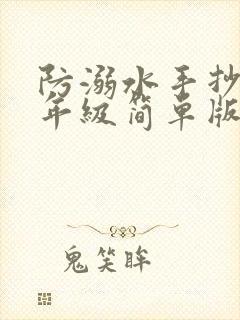 防溺水手抄
年级简单版
鬼笑眸